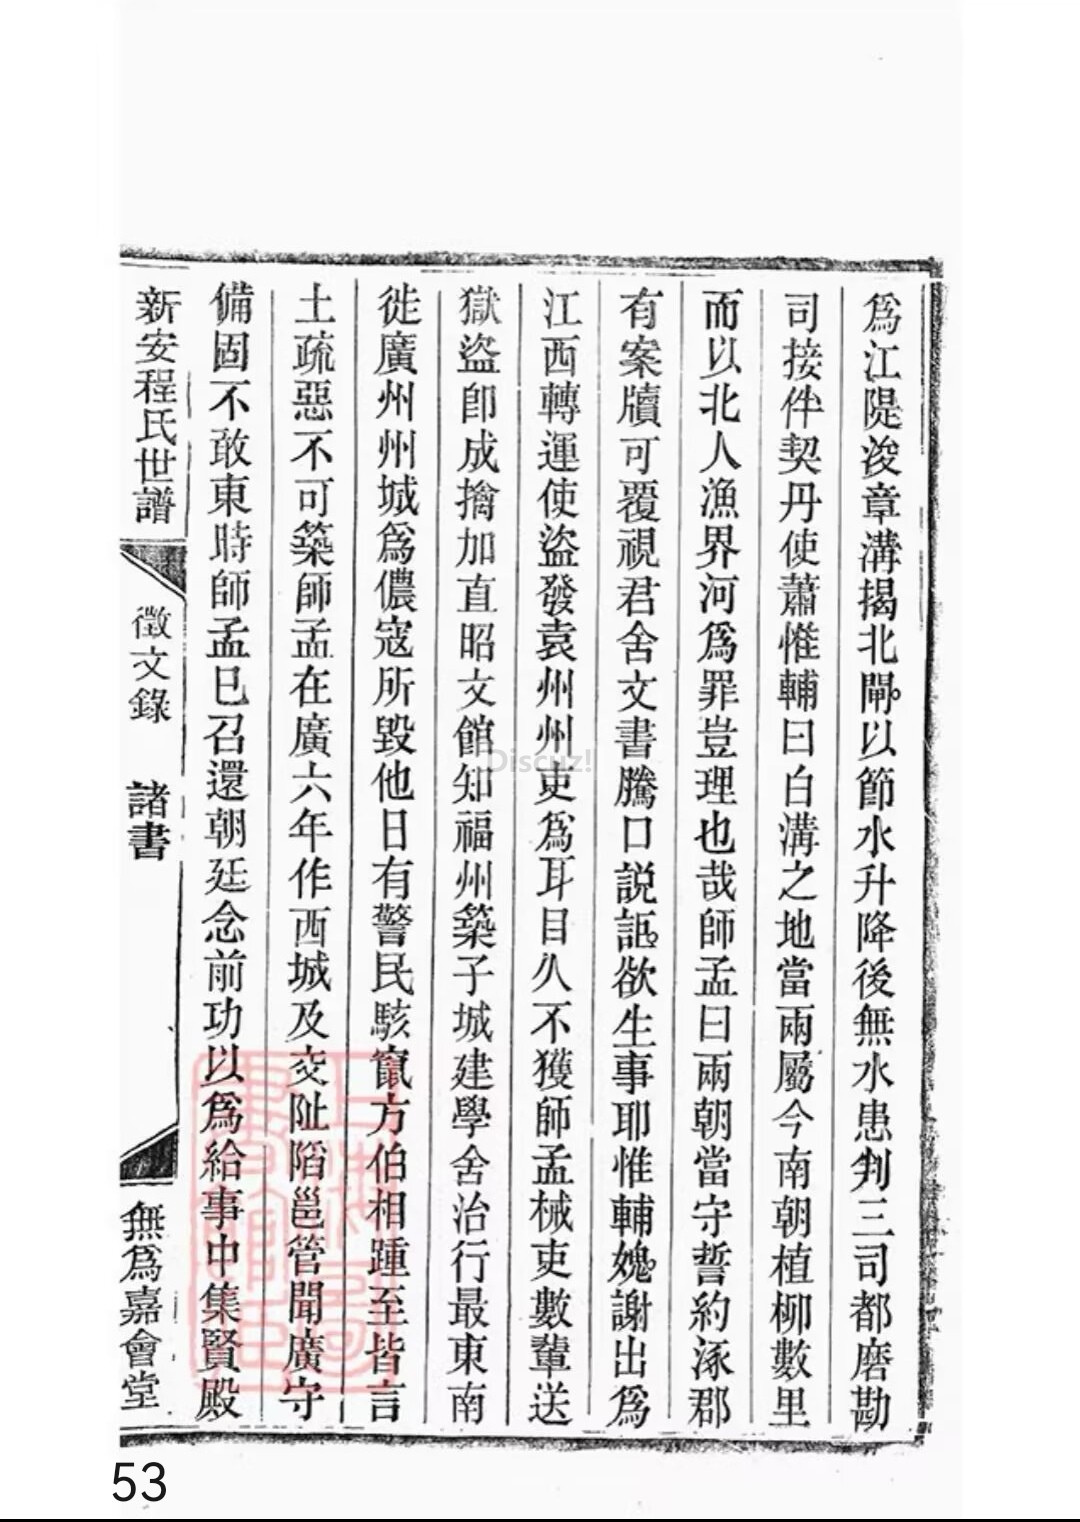 爲江隄浚章溝揭北閘以節水升降後無水患判三司都磨勘
司接伴契丹使蕭惟輔曰白溝之地當兩屬今南朝植柳數里
而以北人漁界河爲罪豈理也哉師孟曰兩朝當守誓約涿郡
有案牘可覆視君舍文書騰口説詎欲生事耶惟輔媿謝出爲
江西轉運使盜發袁州州吏爲耳目久不獲師孟械吏數輩送
獄盜卽成擒加直昭文館知福州築子城建學舍治行最東南
徙廣州州城爲儂寇所毀他日有警民駭竄方伯相踵至皆言
土疏惡不可築師孟在廣六年作西城及交阯陷邕管聞廣守
備固不敢東時師孟已召還朝廷念前功以爲給事中集賢殿
新安程氏世譜 徵文錄 諸書 無爲嘉會堂
Discuz!
53